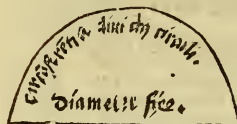 circūferētia dimi dij circuli.
Diameter